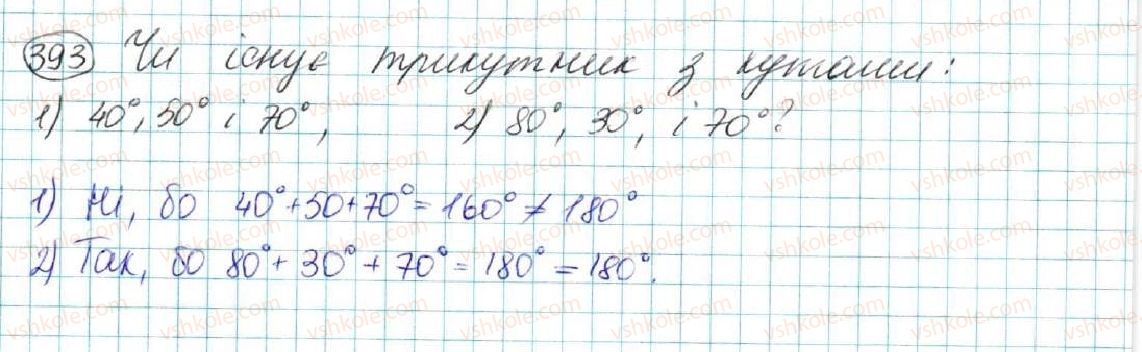 393 Чи існує трикутник з кутами:
1) 40°, 50° і 70°, 2) 80°, 30°, і 70°?
1) Ні, бо 40°+50+70°=160°≠180°
2) Так, бо 80°+30°+70°=180°=180°.